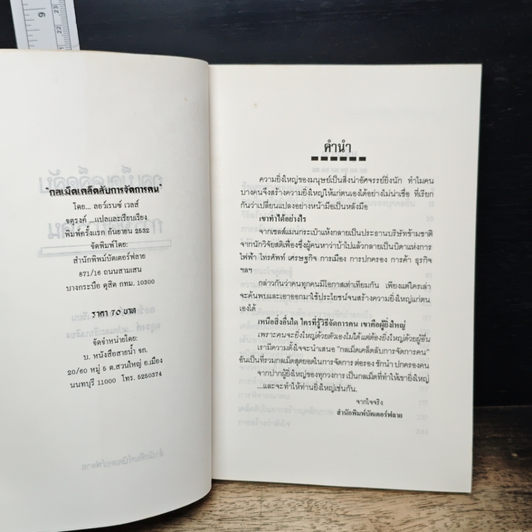 6
"กลเม็ดเคล็ดลับการจัดการคน"
โดย... ลอว์เรนซ์ เวลส์
จตุรงค์ ...แปลและเรียบเรียง
พิมพ์ครั้งแรก กันยายน 2532
จัดพิมพ์โดย:
สำนักพิมพ์บัตเตอร์ฟลาย
871/16 ถนนสามเสน
บางกระบือ ดุสิต กทม. 10300
ราคา 70 บาท
จัดจำหน่ายโดย:
บ. หนังสือสายน้ำ จก.
20/60 หมู่ 5 ต.สวนใหญ่ อ.เมือง
นนทบุรี 11000 โทร. 5250374
คำนำ
ความยิ่งใหญ่ของมนุษย์เป็นสิ่งน่าอัศจรรย์ยิ่งนัก ทำไมคน
บางคนจึงสร้างความยิ่งใหญ่ให้แก่ตนเองได้อย่างไม่น่าเชื่อ ที่เรียก
กันว่าเปลี่ยนแปลงอย่างหน้ามือเป็นหลังมือ
เขาทำได้อย่างไร
จากเซลส์แมนกระเป๋าแห้งกลายเป็นประธานบริษัทข้ามชาติ
จากนักวิจัยสติเฟื่องซึ่งผู้คนหาว่าบ้าไปแล้วกลายเป็นบิดาแห่งการ
ไฟฟ้า โทรศัพท์ เศรษฐกิจ การเมือง การปกครอง การค้า ธุรกิจ
ฯลฯ
กล่าวกันว่าคนทุกคนมีโอกาสเท่าเทียมกัน เพียงแต่ใครเล่า
จะค้นพบและเอาออกมาใช้ประโยชน์จนสร้างความยิ่งใหญ่แก่ตน
เองได้
เหนือสิ่งอื่นใด ใครที่รู้วิธีจัดการคน เขาคือผู้ยิ่งใหญ่
เพราะคนจะยิ่งใหญ่ด้วยตัวเองไม่ได้แต่ต้องยิ่งใหญ่ด้วยผู้อื่น
เรามีความตั้งใจจะนำเสนอ "กลเม็ดเคล็ดลับการจัดการคน"
อันเป็นที่รวมกลเม็ดสุดยอดในการจัดการ ต่อรอง ชักนำ ปกครองคน
จากปากผู้ยิ่งใหญ่ของทุกวงการ เป็นกลเม็ดที่ทำให้เขายิ่งใหญ่
...และจะทำให้ท่านยิ่งใหญ่เช่นกัน.
จากใจจริง
สำนักพิมพ์บัตเตอร์ฟลาย